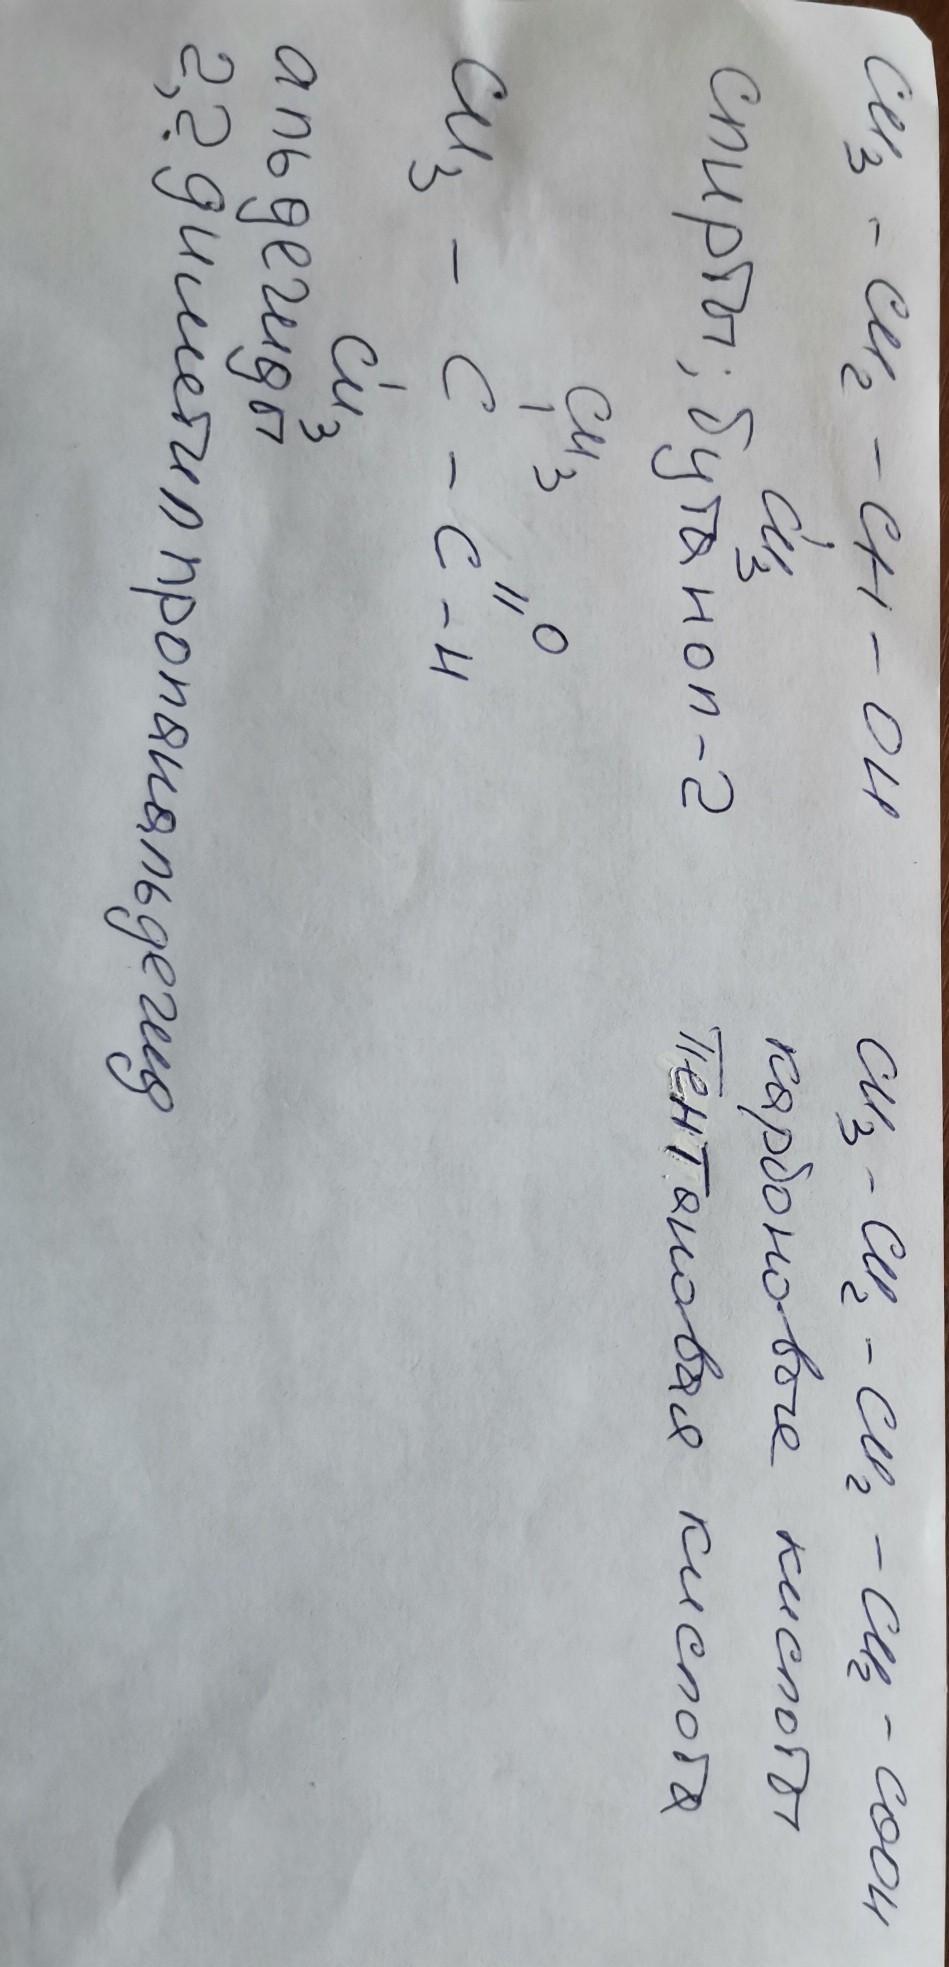 CH3 - CH2 - CH - OH
CH3
Спирты; бутанол-2
CH3 - CH2 - CH2 - CH2 - COOH
карбоновые кислоты
Пентановая кислота
CH3
O
CH3 - C - C - H
CH3
альдегиды
2,2 диметилпропанальдегид